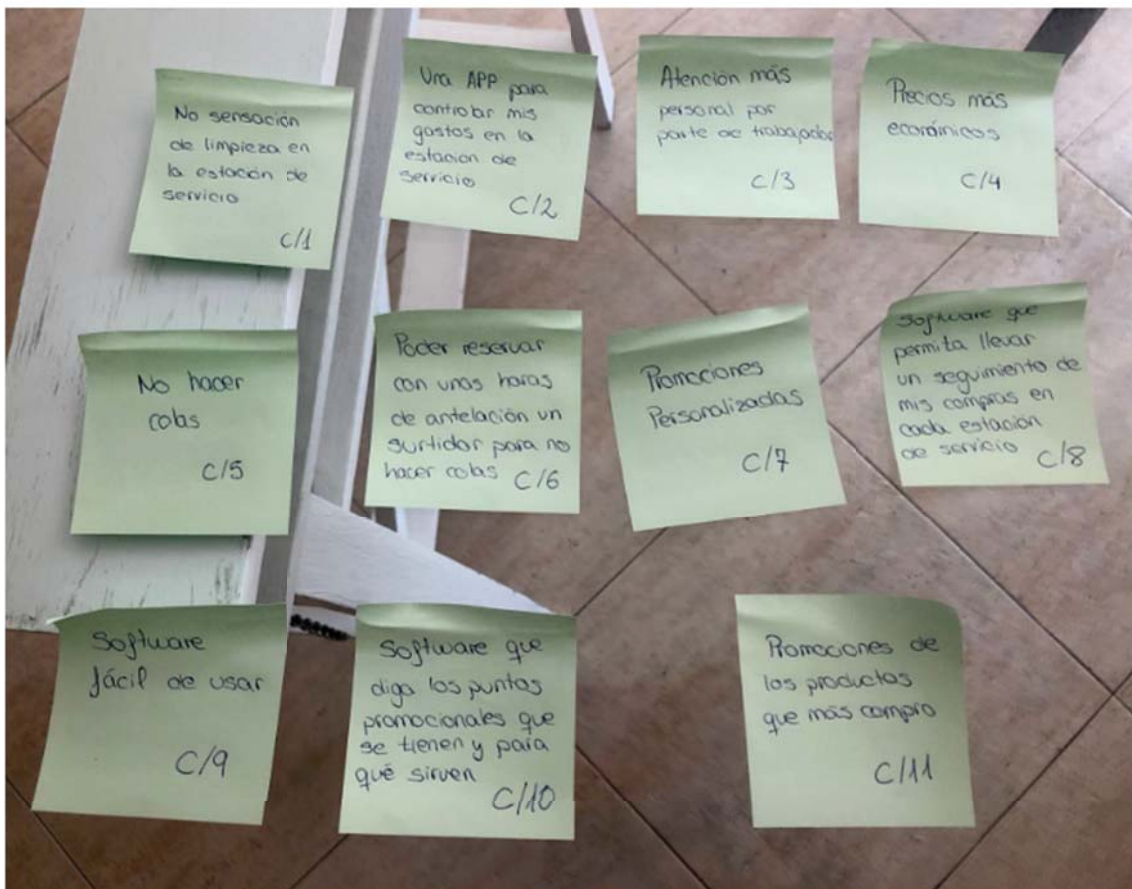 No sensación
de limpieza en
la estación de
servicio
C/1
Una APP para
controlar mis
gastos en la
estación de
servicio
C/2
Atención más
personal por
parte de trabajador
C/3
Precios más
económicos
C/4
No hacer
colas
C/5
Poder reservar
con unas horas
de antelación un
surtidor para no
hacer colas C/6
Promociones
Personalizadas
C/7
Software que
permita llevar
un seguimiento de
mis compras en
cada estación
de servicio C/8
Software
fácil de usar
C/9
Software que
diga los puntos
promocionales que
se tienen y para
qué sirven
C/10
Promociones de
los productos
que más compro
C/11